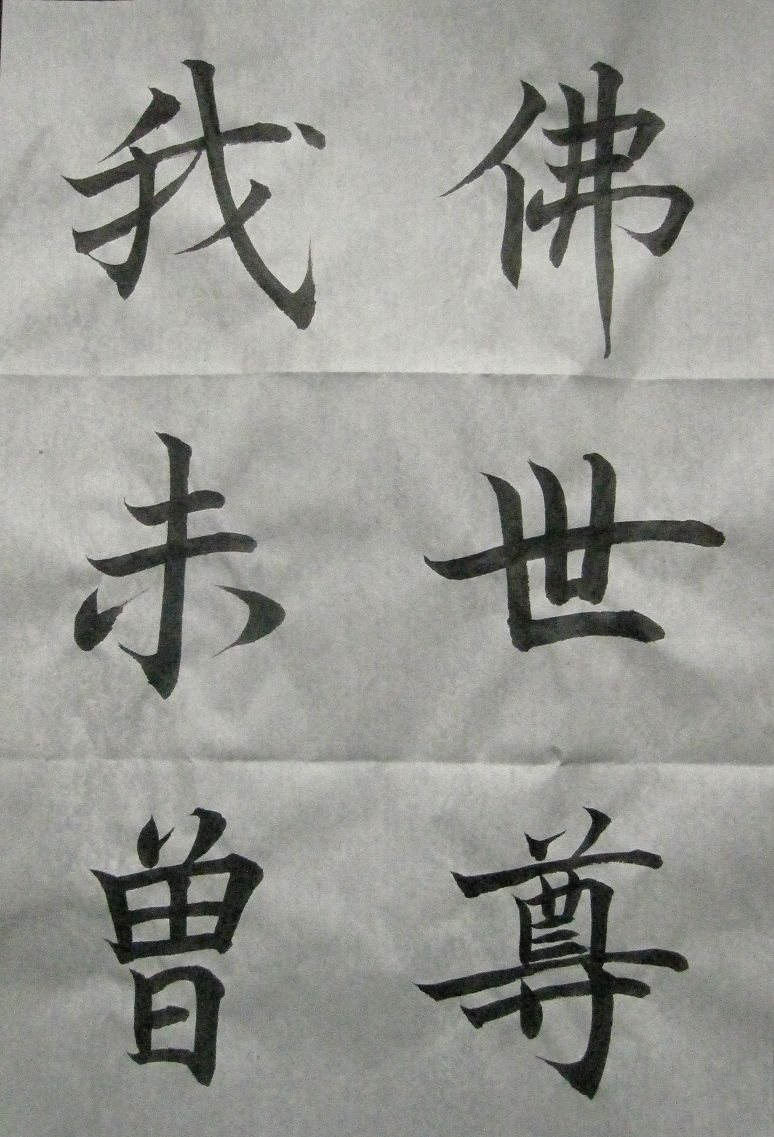 佛世尊
我未曽